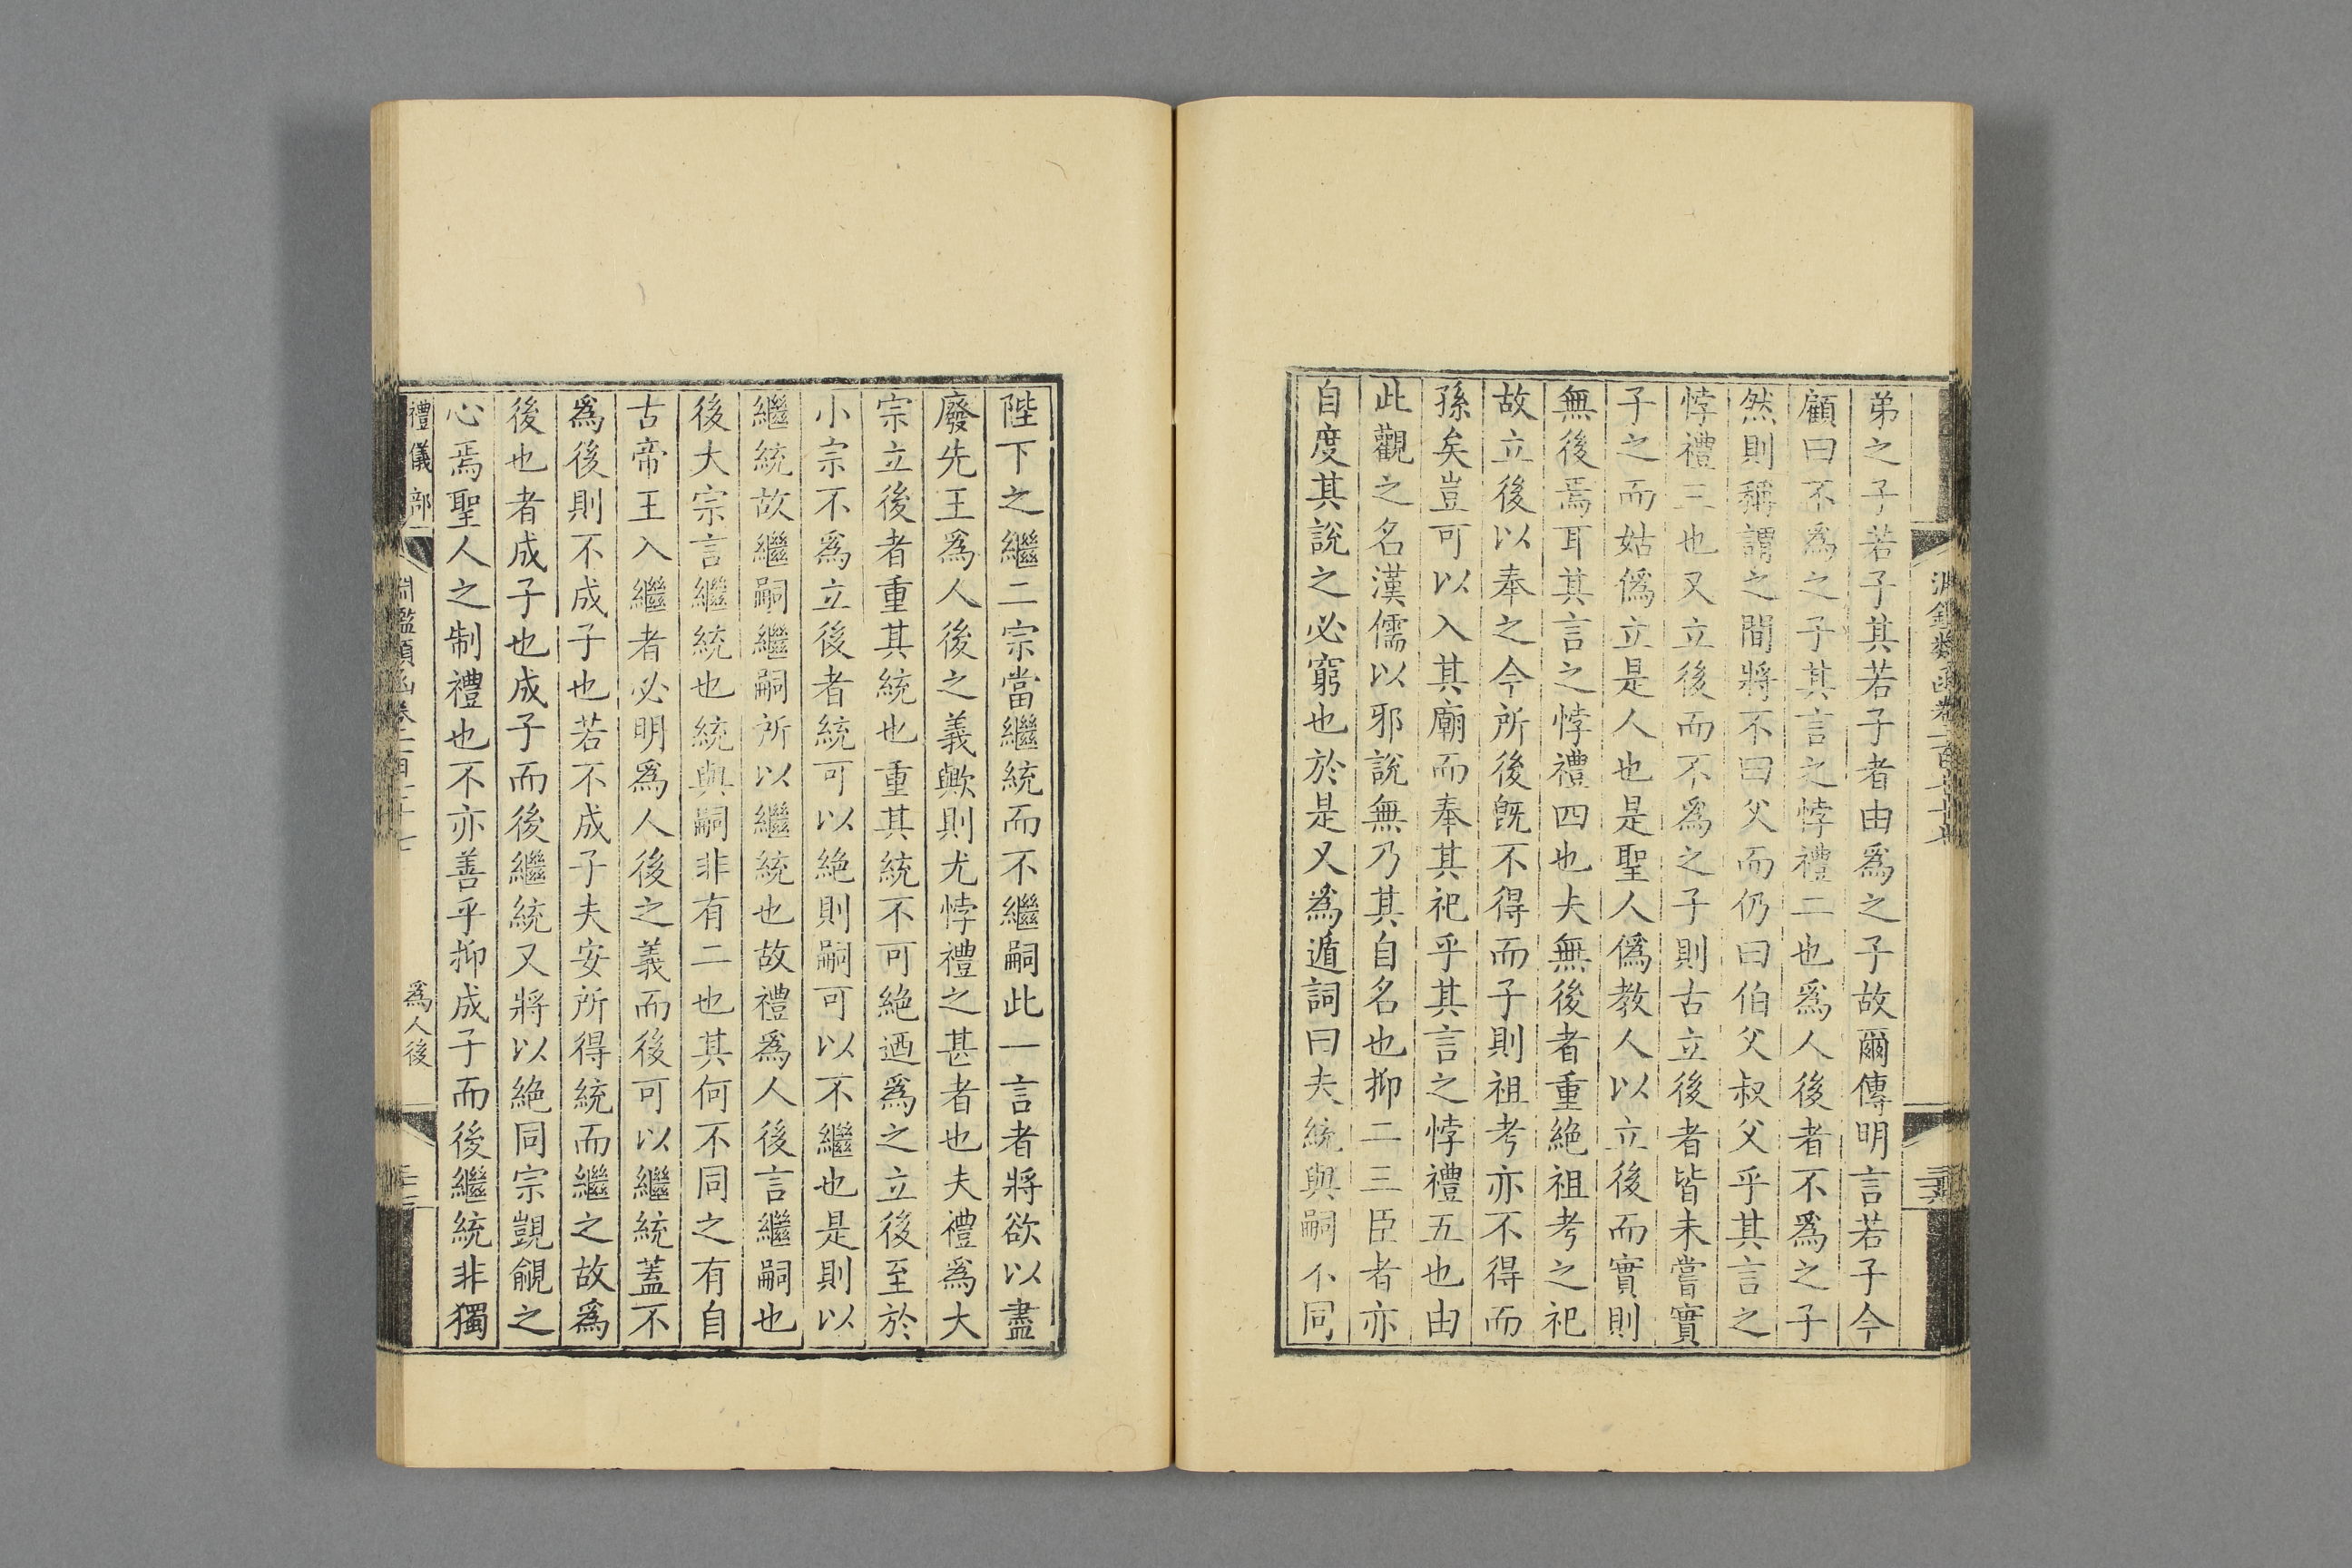 弟之子若子其若子者由爲之子故爾傳明言若子今
顧曰不爲之子其言之悖禮二也爲人後者不爲之子
然則稱謂之間將不曰父而仍曰伯父叔父乎其言之
悖禮三也又立後而不爲之子則古立後者皆未嘗實
子之而姑僞立是人也是聖人僞教人以立後而實則
無後焉耳其言之悖禮四也夫無後者重絶祖考之祀
故立後以奉之今所後旣不得而子則祖考亦不得而
孫矣豈可以入其廟而奉其祀乎其言之悖禮五也由
此觀之名漢儒以邪說無乃其自名也抑二三臣者亦
自度其說之必窮也於是又爲遁詞曰夫統與嗣不同
陛下之繼二宗當繼統而不繼嗣此一言者將欲以盡
廢先王爲人後之義歟則尤悖禮之甚者也夫禮爲大
宗立後者重其統也重其統不可絶迺爲之立後至於
小宗不爲立後者統可以絶則嗣可以不繼也是則以
繼統故繼嗣繼嗣所以繼統也故禮爲人後言繼嗣也
後大宗言繼統也統與嗣非有二也其何不同之有自
古帝王入繼者必明爲人後之義而後可以繼統蓋不
爲後則不成子也若不成子夫安所得統而繼之故爲
後也者成子也成子而後繼統又將以絶同宗覬覦之
心焉聖人之制禮也不亦善乎抑成子而後繼統非獨
禮儀部 爲人後